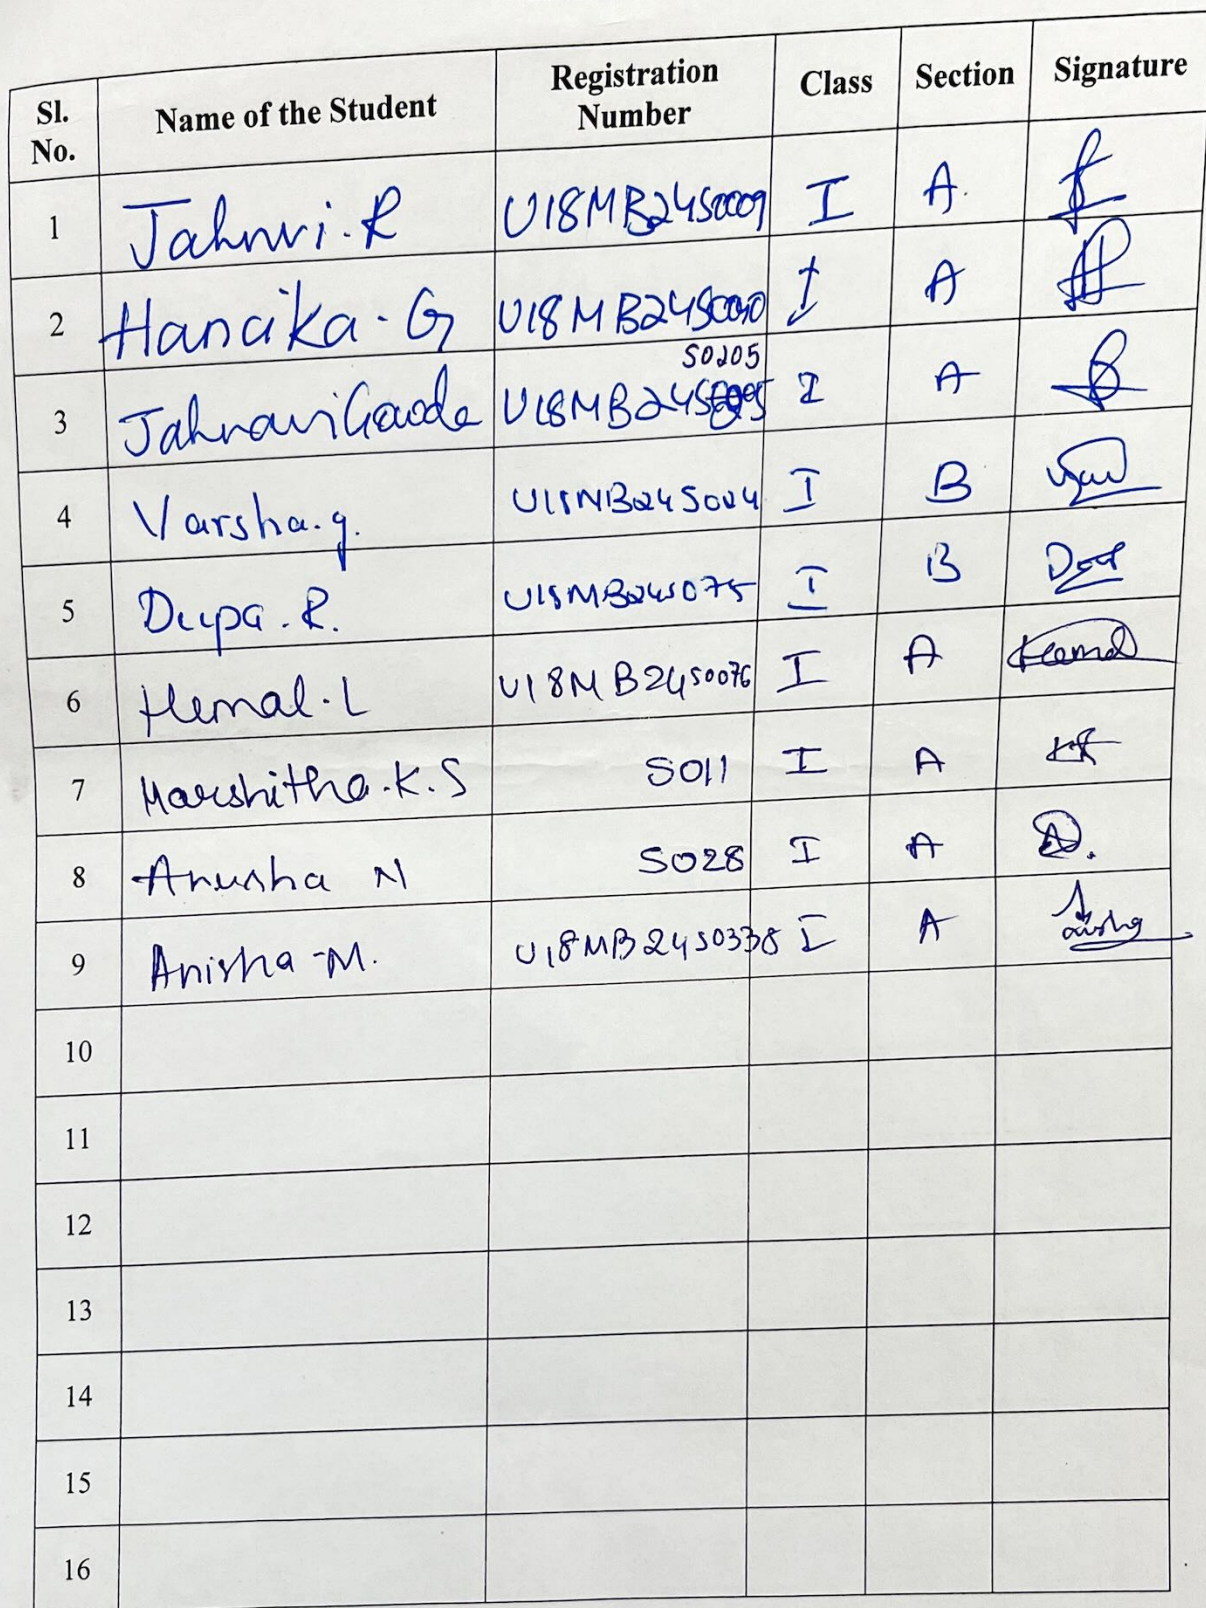 Sl. No. Name of the Student Registration Number Class Section Signature
1 Jahnvi.R U18MB24S0009 I A.
2 Hansika-G U18MB24S0040 I A
S0205
3 Jahnavi Gowda U18MB24S I A
4 Varsha.g. U18MB24S024 I B
5 Deepa.R. U18MB24S075 I B
6 Hemal.L U18MB24S0076 I A
7 Harshitha.K.S S011 I A
8 Anusha N S028 I A
9 Anisha-M. U18MB24S0338 I A
10
11
12
13
14
15
16